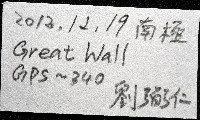 2013,12,19 南極
Great Wall
GPS~340
劉弼仁